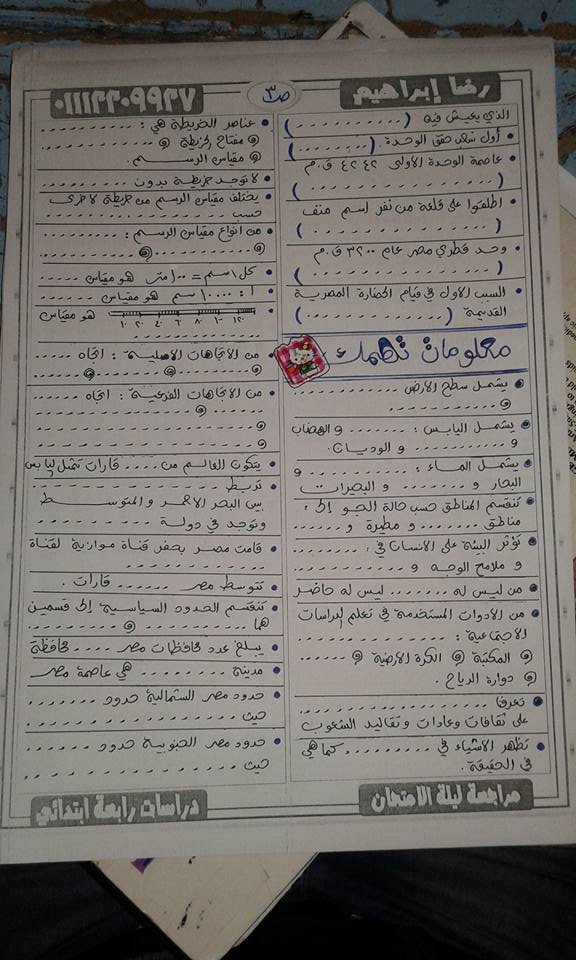 رضا إبراهيم
ص٣
٠١١١٢٢٠٩٩٢٧
الذي يعيش فيه (..........)
أول شهر حقق الوحدة. (........)
عاصمة الوحدة الأولى ٤٢٤٢ ق.م
(................)
اطلقوا على قلعة من نفر اسم منف
(................)
وحد قطري مصر عام ٣٢٠٠ ق.م
(................)
السبب الأول في قيام الحضارة المصرية
القديمة (................)
معلومات تهمك
يشمل سطح الأرض ..........
و ..........
يشمل اليابس: ........ و الهضاب
و .......... و الوديان.
يشمل الماء: .......... و
البحار و ........ و البحيرات
تنقسم المناطق حسب حالة الجو إلى:
مناطق ........ و مطيرة و ......
تؤثر البيئة على الانسان في: ........
و ملامح الوجه و ..........
من ليس له ........ ليس له حاضر
من الأدوات المستخدمة في تعلم الدراسات
الاجتماعية: ..............
و المكتبة و الكرة الأرضية و ......
و دوارة الرياح.
تعرفنا ................
على ثقافات وعادات وتقاليد الشعوب
تظهر الأشياء في .......... كما هي
في الحقيقة.
عناصر الخريطة هي: ..........
و مفتاح الخريطة و ..........
و مقياس الرسم.
لا توجد خريطة بدون ..........
يختلف مقياس الرسم من خريطة لأخرى
حسب ..........
من أنواع مقياس الرسم: ..........
و .......... و ..........
كل ١سم = ١٠٠ متر هو مقياس ......
١ : ١٠٠٠٠ سم هو مقياس ......
هو مقياس
١٠ ٢٠ ٤٠ ٦٠ ٨٠ ١٠٠ ١٢٠
................
من الاتجاهات الأصلية: اتجاه ......
و ........ و ........ و ........
من الاتجاهات الفرعية: اتجاه ......
.......... و ..........
و ................
و ................
يتكون العالم من .... قارات تمثل اليابس
تربط ................
بين البحر الأحمر و المتوسط
وتوجد في دولة ..........
قامت مصر بحفر قناة موازية لقناة
................
تتوسط مصر ...... قارات.
تنقسم الحدود السياسية إلى قسمين
هما .......... و ..........
يبلغ عدد محافظات مصر .... محافظة
مدينة .......... هي عاصمة مصر
حدود مصر الشمالية حدود ......
حيث ................
حدود مصر الجنوبية حدود ......
حيث ................
مراجعة ليلة الامتحان
دراسات رابعة ابتدائي